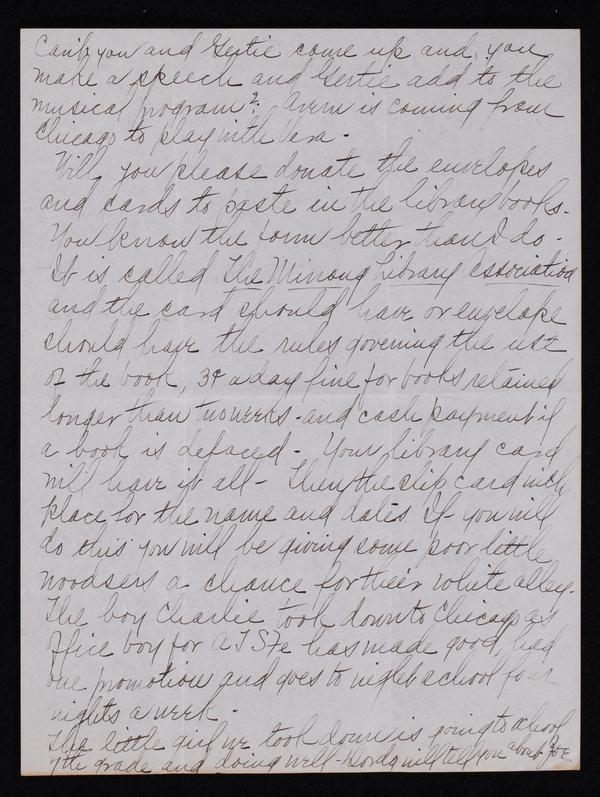 Can't you and Gertie come up and you
make a speech and Gertie add to the
musical program? is coming from
Chicago to play with Vera.
Will you please donate the envelopes
and cards to paste in the library books.
You know the form better than I do.
It is called The Minong Library Association
and the card should have or envelope
should have the rules governing the use
of the book, 3¢ a day fine for books retained
longer than two weeks - and cash payment if
a book is defaced - Your library card
will have it all - Then the slip card with
place for the name and dates If you will
do this you will be giving some poor little
woodsers a chance for their white alley.
The boy Charlie took down to Chicago as
office boy for A T S Fe has made good, had
one promotion and goes to night school four
nights a week.
The little girl we took down is going to school
7th grade and doing well - will tell you about